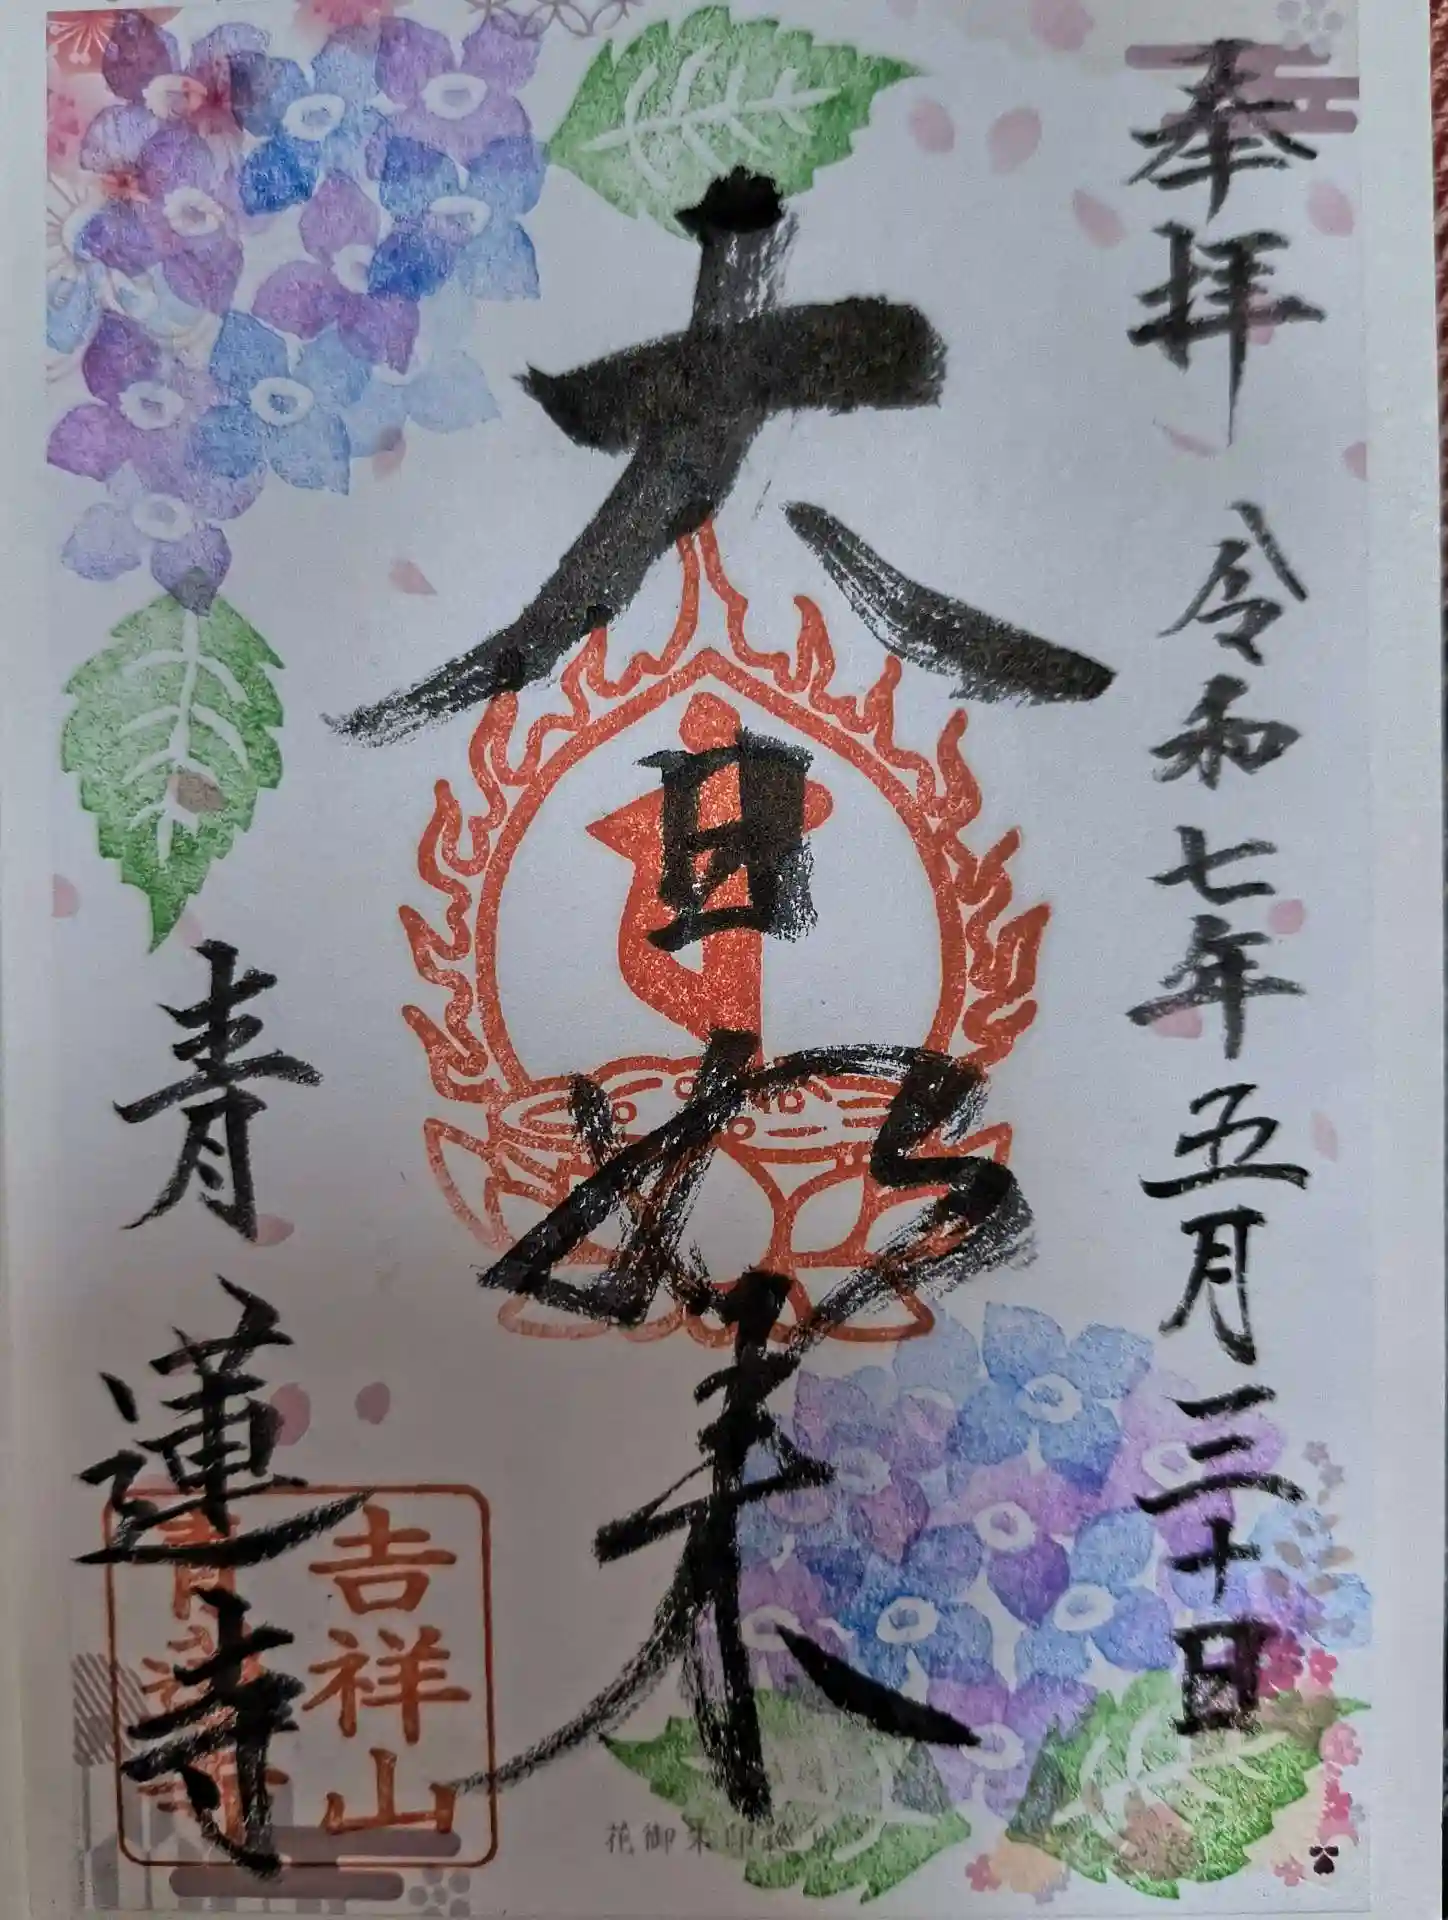 奉拝 令和七年五月三十日
大日如来
青蓮寺
吉祥山
青蓮寺
花御朱印巡り